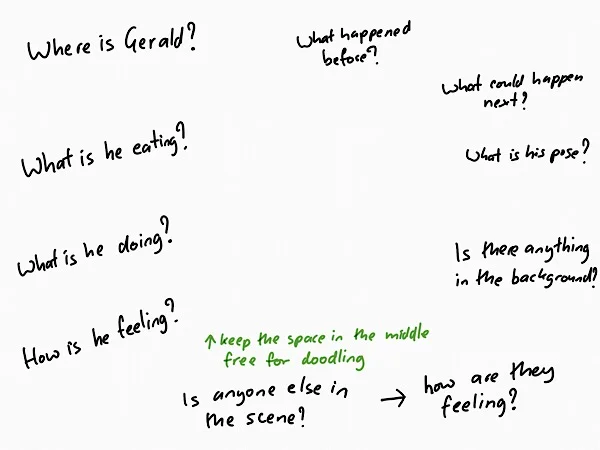 Where is Gerald?
What happened
before?
What could happen
next?
What is he eating?
What is his pose?
What is he doing?
Is there anything
in the background?
How is he feeling?
↑ keep the space in the middle
free for doodling
Is anyone else in
the scene?
→ how are they
feeling?